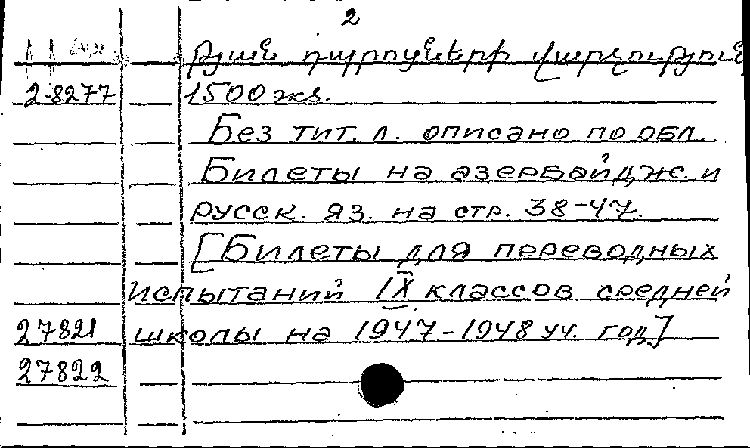 2
թյան դպրոցների վարչություն
28277 1500 экз.
Без тит. л. описано по обл.
Билеты на азербайджс. и
русск. яз. на стр. 38-47.
[Билеты для переводных
испытаний IX классов средней
27821 школы на 1947-1948 уч. год]
27822